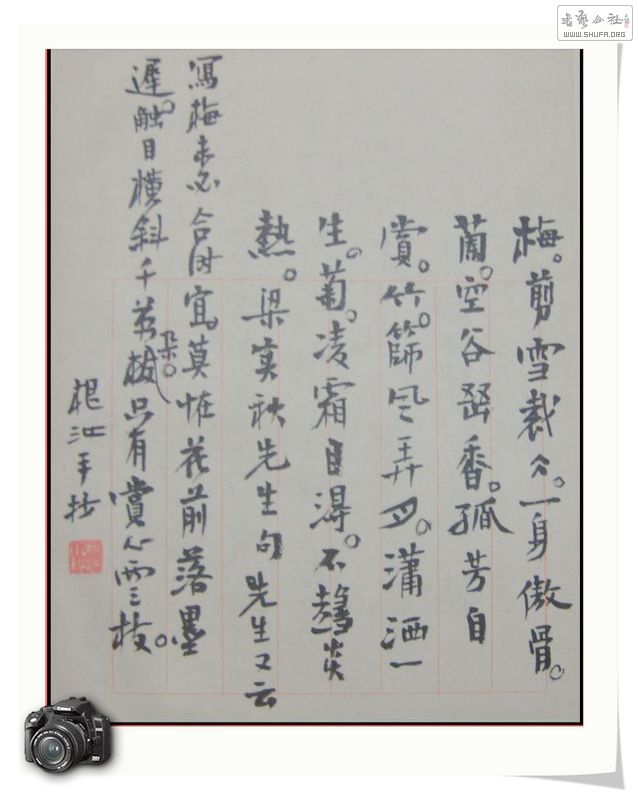 梅。剪雪裁仌。一身傲骨。
蘭。空谷幽香。孤芳自
賞。竹。篩風弄月。瀟洒一
生。菊。凌霜自得。不趨炎
熱。梁實秋先生句先生又云
寫梅未必合时宜。莫怪花前落墨
遲。触目橫斜千萬朵。只有賞心兩三枝。
手抄
书艺公社
WWW.SHUFA.ORG
Canon